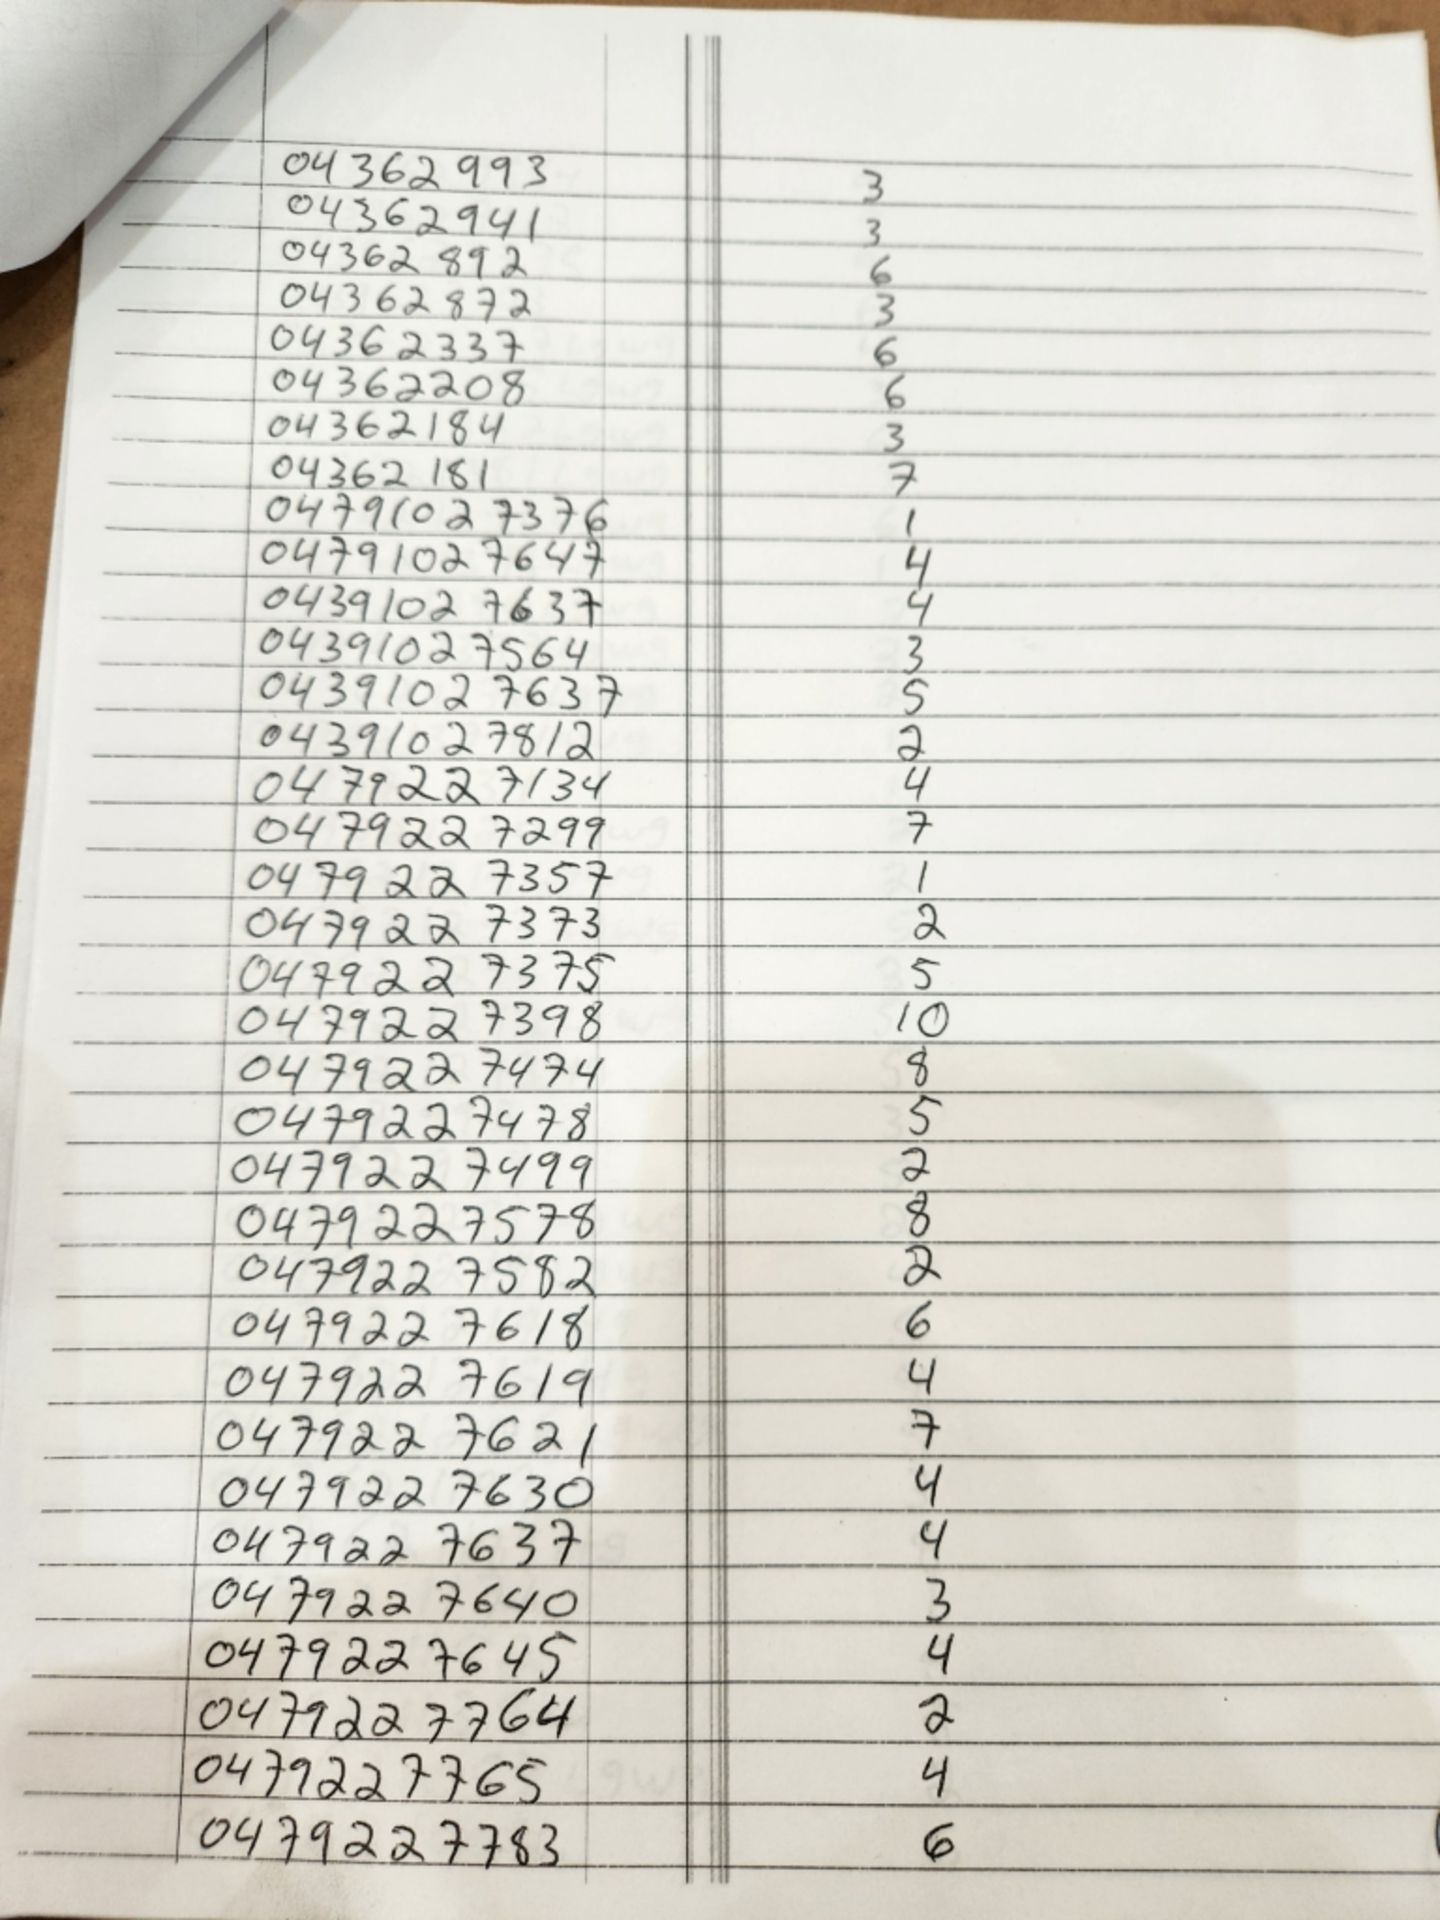 04362993 3
04362941 3
04362892 6
04362872 3
04362337 6
04362208 6
04362184 3
04362181 7
04791027376 1
04791027647 4
04391027637 4
04391027564 3
04391027637 5
04391027812 2
04792277134 4
0479227299 7
0479227357 1
0479227373 2
0479227375 5
0479227398 10
0479227474 8
0479227478 5
0479227499 2
0479227578 8
0479227582 2
0479227618 6
0479227619 4
0479227621 7
0479227630 4
0479227637 4
0479227640 3
0479227645 4
0479227764 2
0479227765 4
0479227783 6